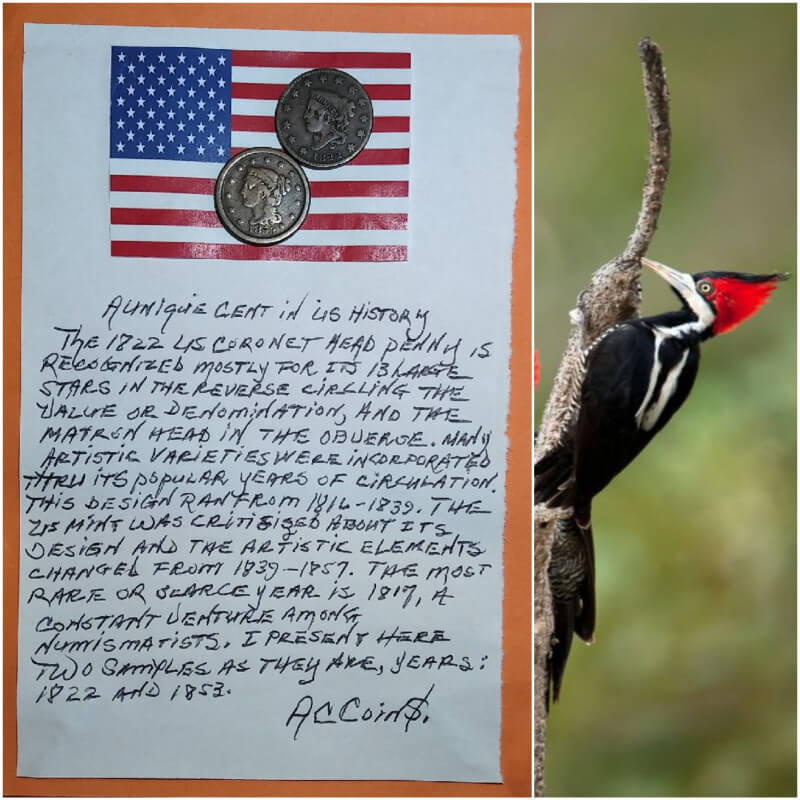 1822
185
A UNIQUE CENT IN US HISTORY
THE 1822 US CORONET HEAD PENNY IS
RECOGNIZED MOSTLY FOR ITS 13 LARGE
STARS IN THE REVERSE CIRCLING THE
VALUE OR DENOMINATION, AND THE
MATRON HEAD IN THE OBVERSE. MANY
ARTISTIC VARIETIES WERE INCORPORATED
THRU ITS POPULAR YEARS OF CIRCULATION.
THIS DESIGN RAN FROM 1816-1839. THE
US MINT WAS CRITISISED ABOUT ITS
DESIGN AND THE ARTISTIC ELEMENTS
CHANGED FROM 1839-1857. THE MOST
RARE OR SCARCE YEAR IS 1817, A
CONSTANT VENTURE AMONG
NUMISMATISTS. I PRESENT HERE
TWO SAMPLES AS THEY ARE, YEARS:
1822 AND 1853.
ACCoin$.